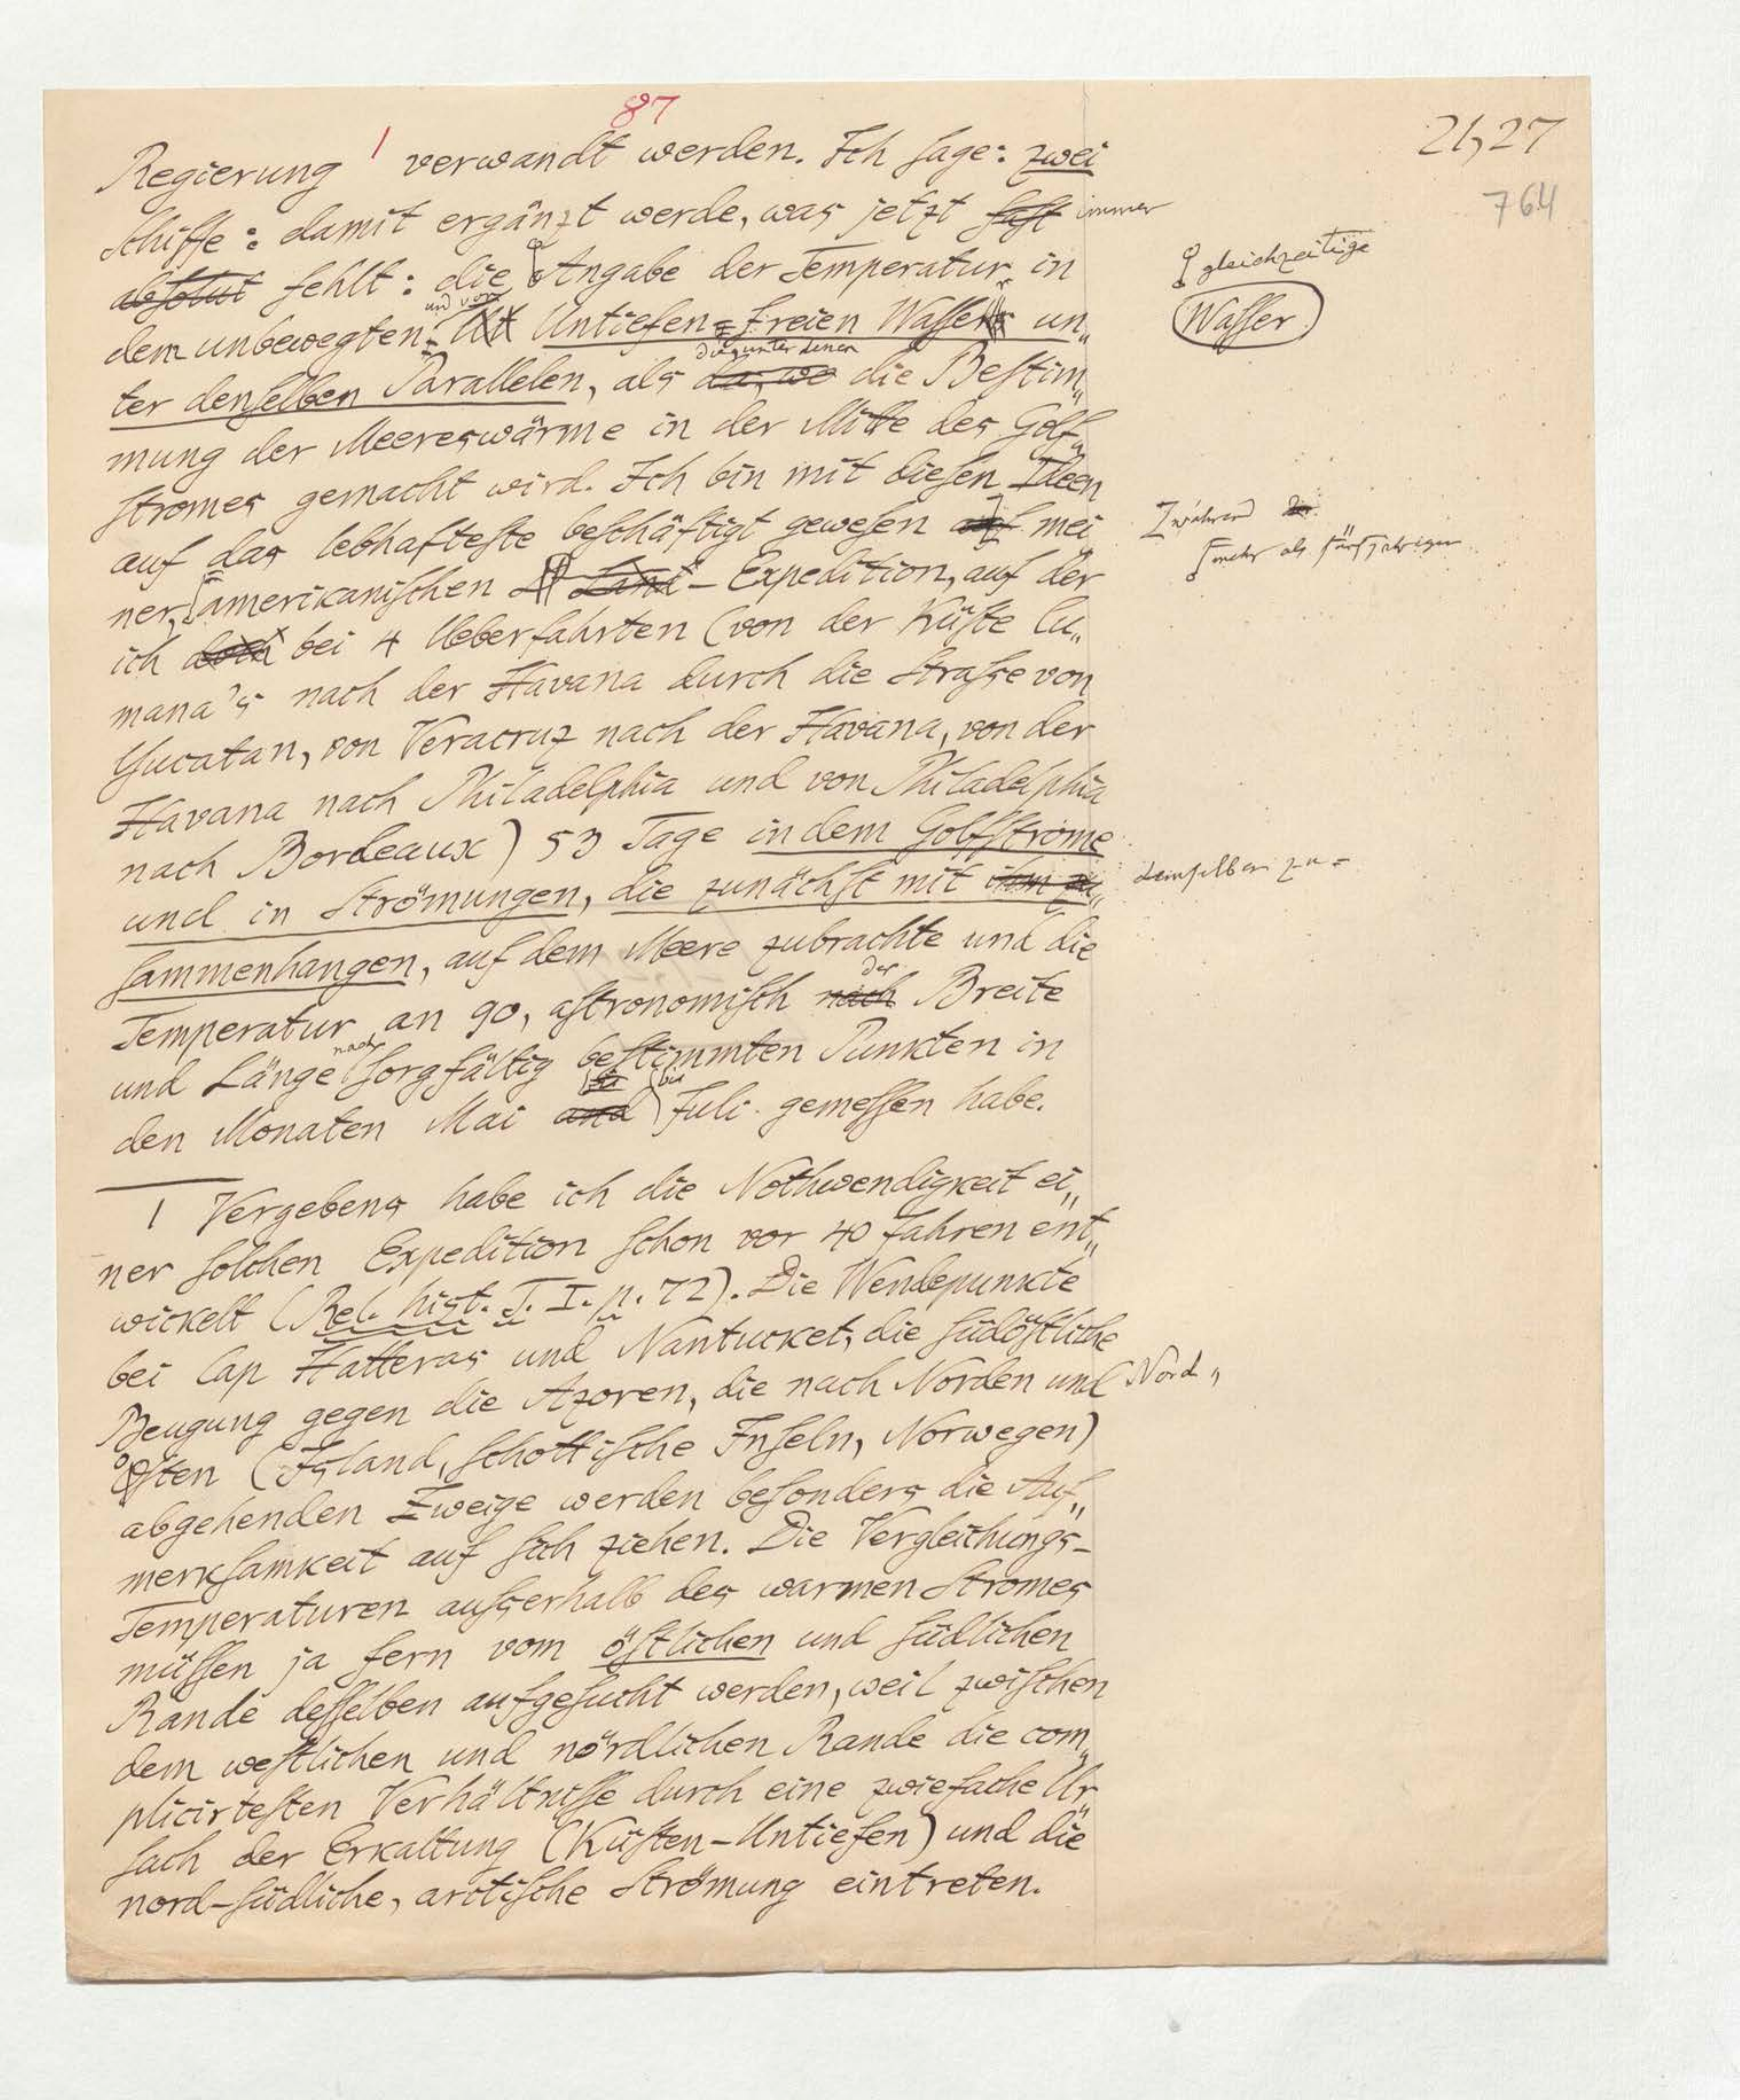 87
21,27
764
Regierung | verwandt werden. Ich sage: zwei
Schiffe: damit ergänzt werde, was jetzt fast immer
absolut fehlt: die Angabe der Temperatur in
gleichzeitige
und von
dem unbewegten, Untiefen-freien Wassers un„
Wasser
die unter denen
ter denselben Parallelen, als da, wo die Bestim„
mung der Meereswärme in der Mitte des Golf„
stromes gemacht wird. Ich bin mit diesen Ideen
auf das lebhafteste beschäftigt gewesen auf mei
während der
ner amerikanischen Land-Expedition, auf der
mehr als fünfjährigen
ich doch bei 4 Ueberfahrten (von der Küste Cu„
mana's nach der Havana durch die Strasse von
Yucatan, von Veracruz nach der Havana, von der
Havana nach Philadelphia und von Philadelphia
nach Bordeaux) 53 Tage in dem Golfstrome
und in Strömungen, die zunächst mit ihm zu„
demselben zu=
sammenhangen, auf dem Meere zubrachte und die
der
Temperatur an 90, astronomisch nach Breite
nach
und Länge sorgfältig bestimmten Punkten in
bis
den Monaten Mai und Juli gemessen habe.
| Vergebens habe ich die Nothwendigkeit ei„
ner solchen Expedition schon vor 40 Jahren ent„
wickelt (Rel. hist. T. I. p. 72). Die Wendepunkte
bei Cap Hatteras und Nantucket, die südöstliche
Beugung gegen die Azoren, die nach Norden und Nord„
osten (Island, schottische Inseln, Norwegen)
abgehenden Zweige werden besonders die Auf„
merksamkeit auf sich ziehen. Die Vergleichungs-
Temperaturen ausserhalb des warmen Stromes
müssen ja fern vom östlichen und südlichen
Rande desselben aufgesucht werden, weil zwischen
dem westlichen und nördlichen Rande die com„
plicirtesten Verhältnisse durch eine zwiefache Ur
sach der Erkaltung (Küsten-Untiefen) und die
nord-südliche, arctische Strömung eintreten.